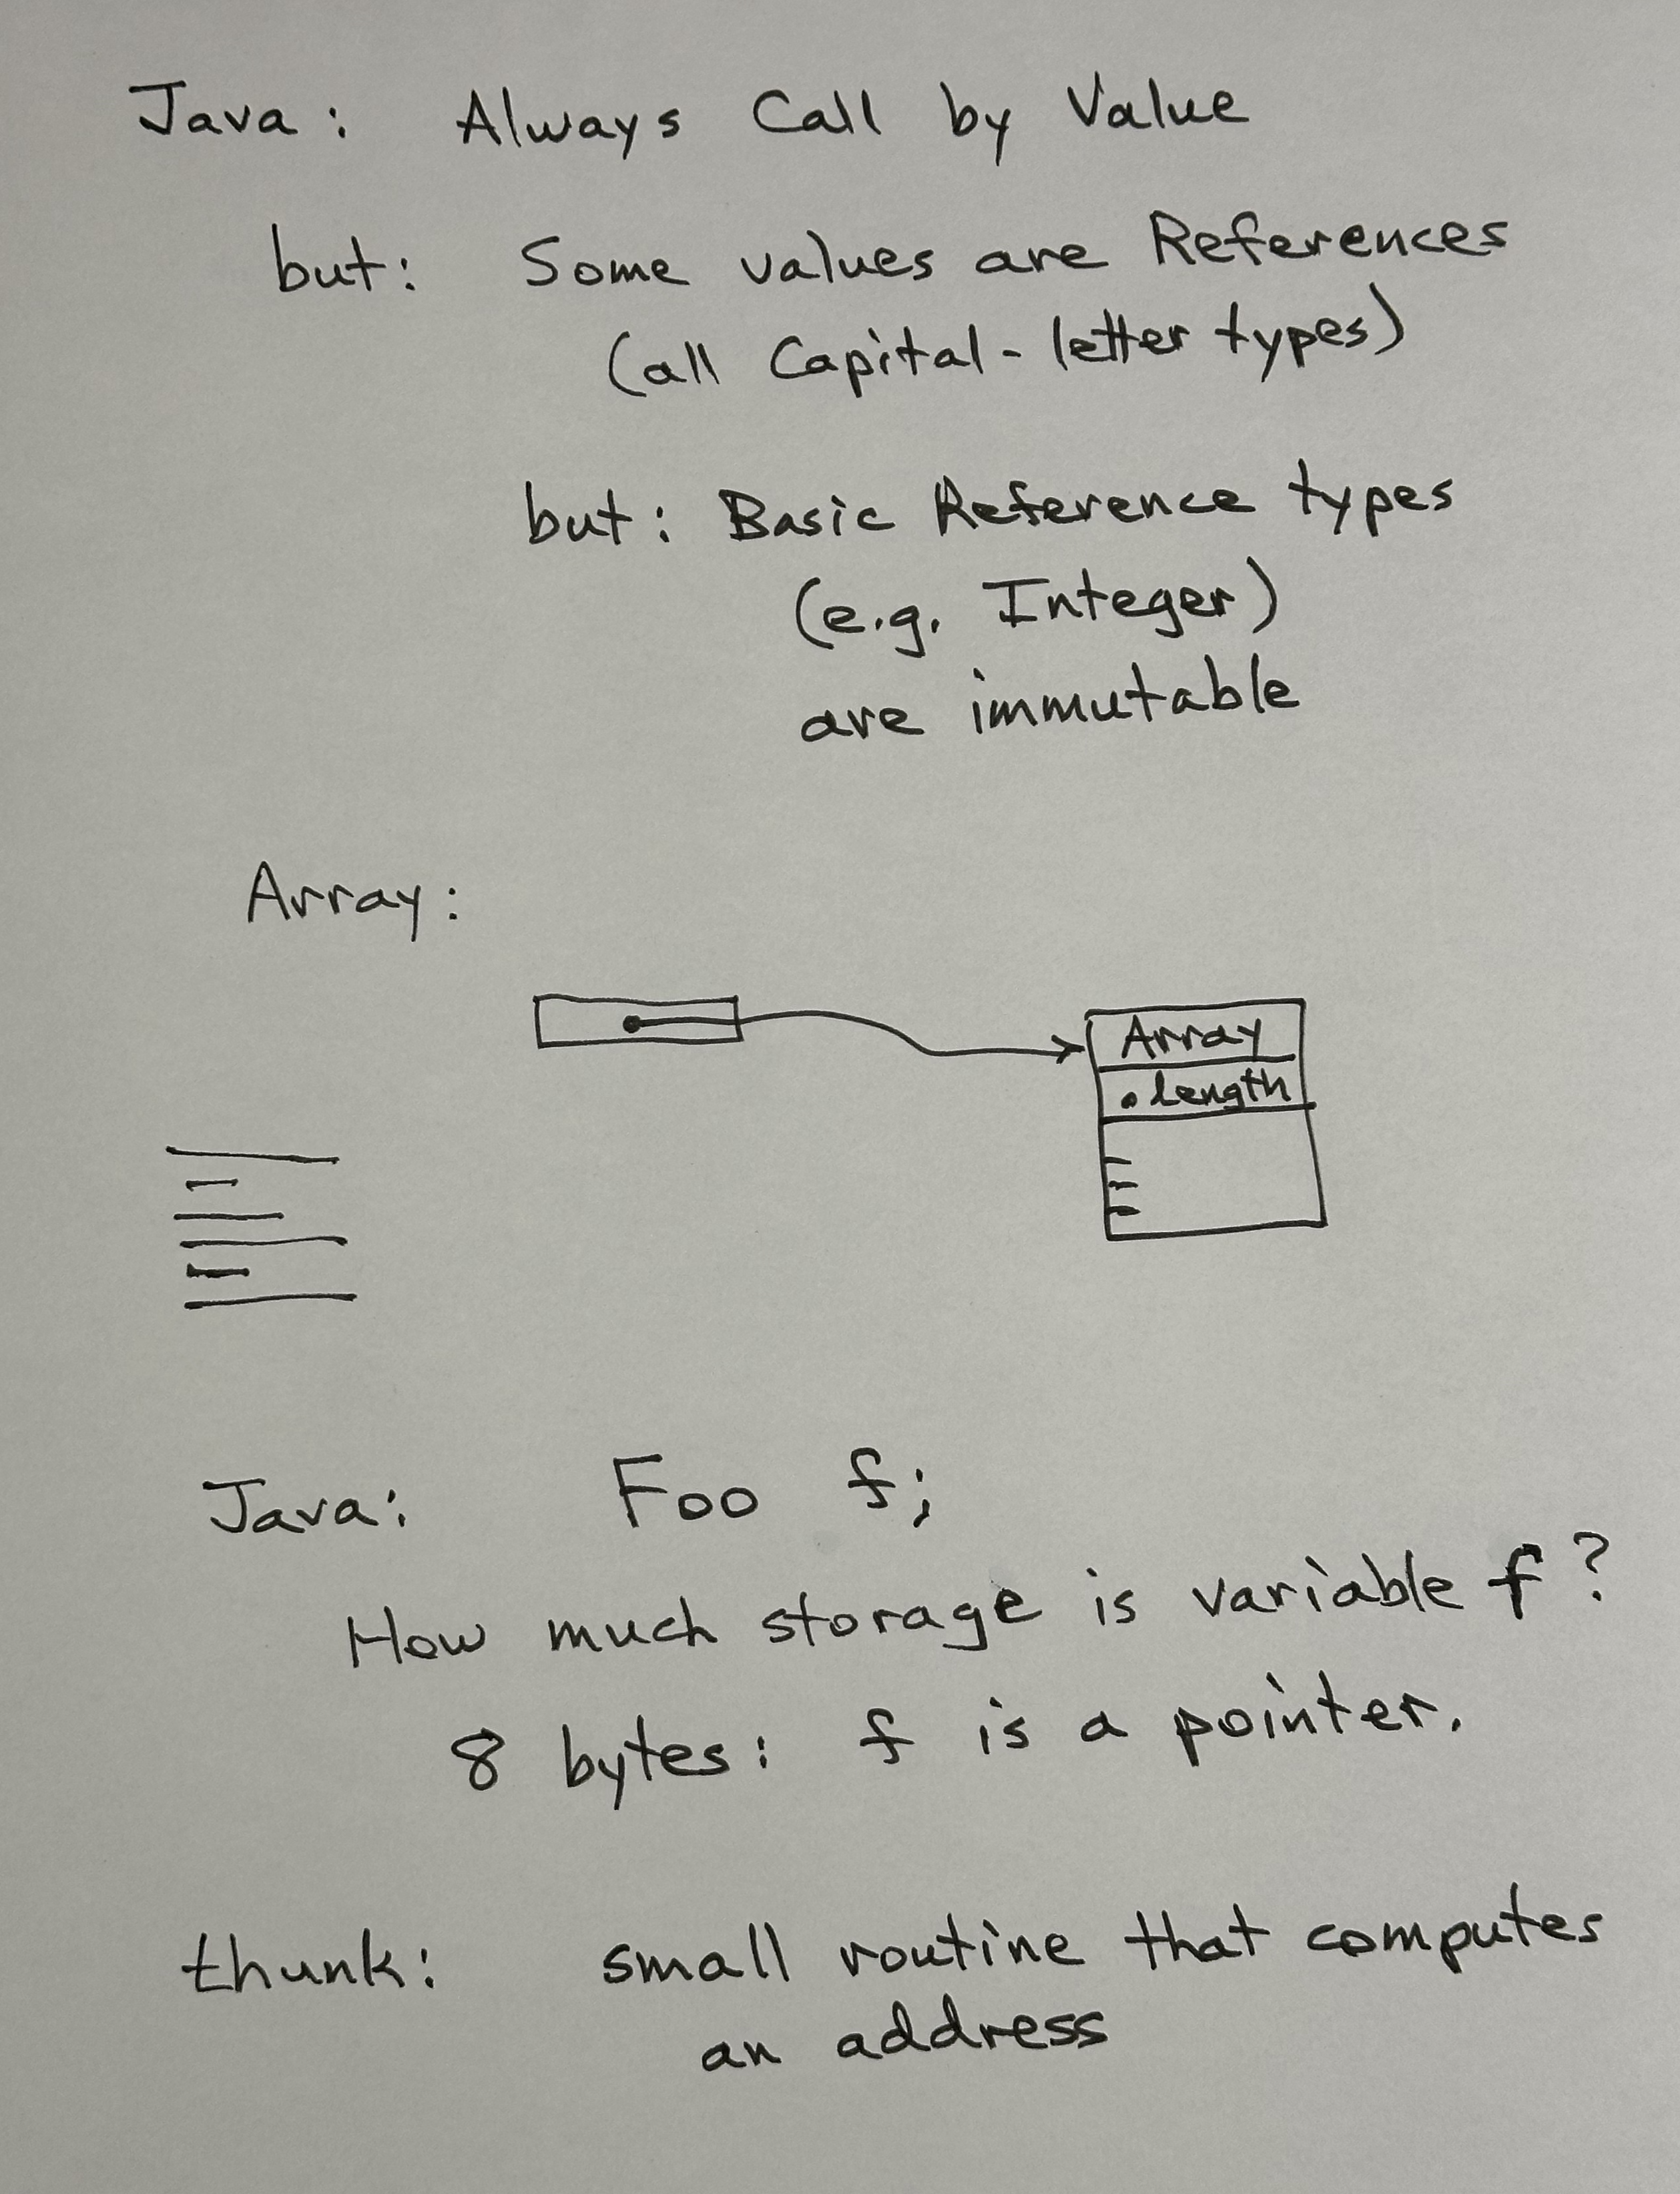 Java: Always Call by Value
but: Some values are References
(all Capital-letter types)
but: Basic Reference types
(e.g. Integer)
are immutable
Array:
Array
.length
Java: Foo f;
How much storage is variable f?
8 bytes: f is a pointer.
thunk: small routine that computes
an address